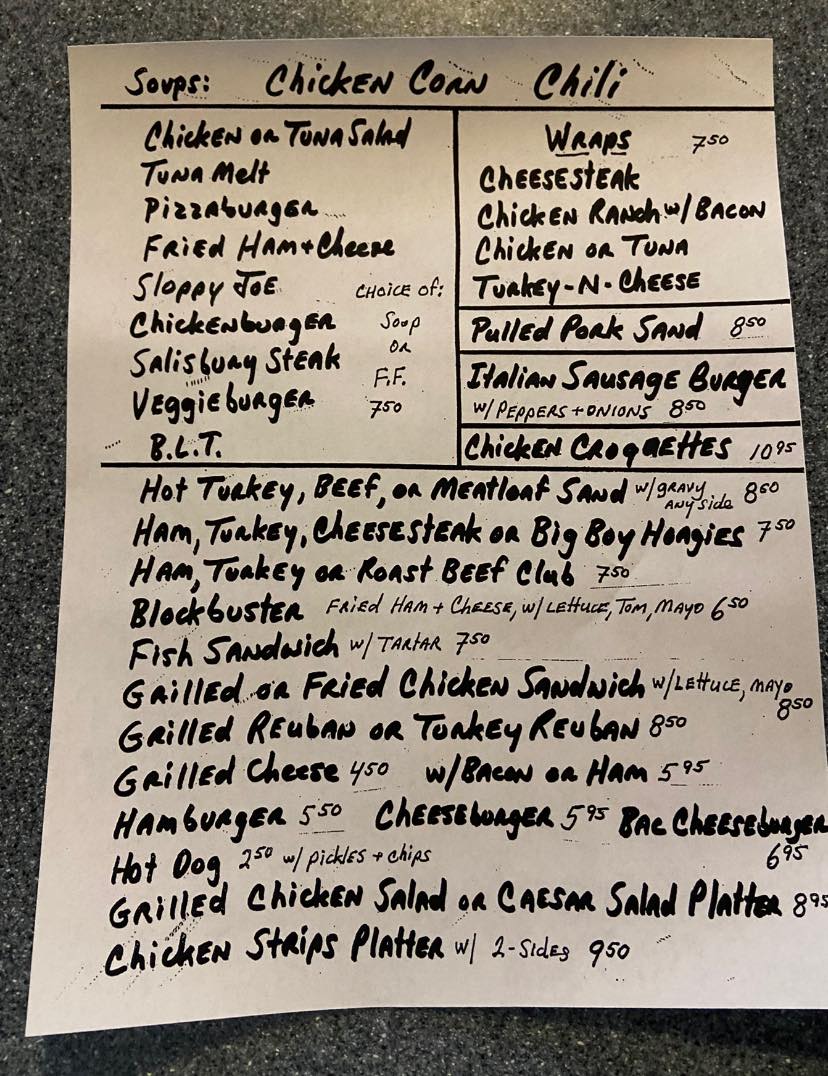 Soups: Chicken Corn Chili
Chicken or Tuna Salad
Tuna Melt
Pizzaburger
Fried Ham + Cheese
Sloppy Joe
Chickenburger
Salisbury Steak
Veggieburger
B.L.T.
Choice of:
Soup
or
F.F.
7.50
Wraps 7.50
Cheesesteak
Chicken Ranch w/ Bacon
Chicken or Tuna
Turkey-N-Cheese
Pulled Pork Sand 8.50
Italian Sausage Burger
w/ Peppers + Onions 8.50
Chicken Croquettes 10.95
Hot Turkey, Beef, or Meatloaf Sand w/gravy any side 8.50
Ham, Turkey, Cheesesteak or Big Boy Hoagies 7.50
Ham, Turkey or Roast Beef Club 7.50
Blockbuster Fried Ham + Cheese, w/ Lettuce, Tom, Mayo 6.50
Fish Sandwich w/ Tartar 7.50
Grilled or Fried Chicken Sandwich w/Lettuce, Mayo
8.50
Grilled Reuban or Turkey Reuban 8.50
Grilled Cheese 4.50 w/Bacon or Ham 5.95
Hamburger 5.50 Cheeseburger 5.95 Bac Cheeseburger
6.95
Hot Dog 2.50 w/ pickles + chips
Grilled Chicken Salad or Caesar Salad Platter 8.95
Chicken Strips Platter w/ 2-Sides 9.50